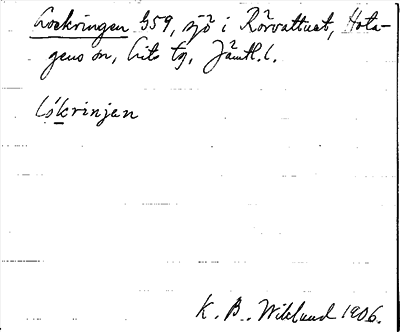 Lockringen G59, sjö i Rörvattnet, Hota-
gens sn, Lits tg, Jämtl. l.
Lókrinjen
K. B. Wiklund 1906.